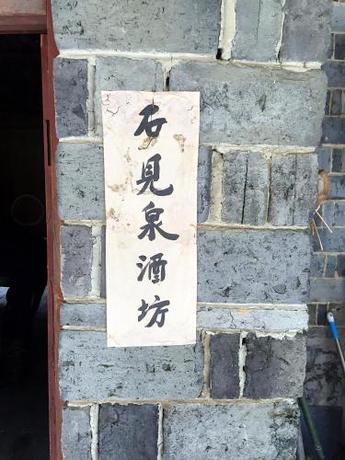 石見泉酒坊